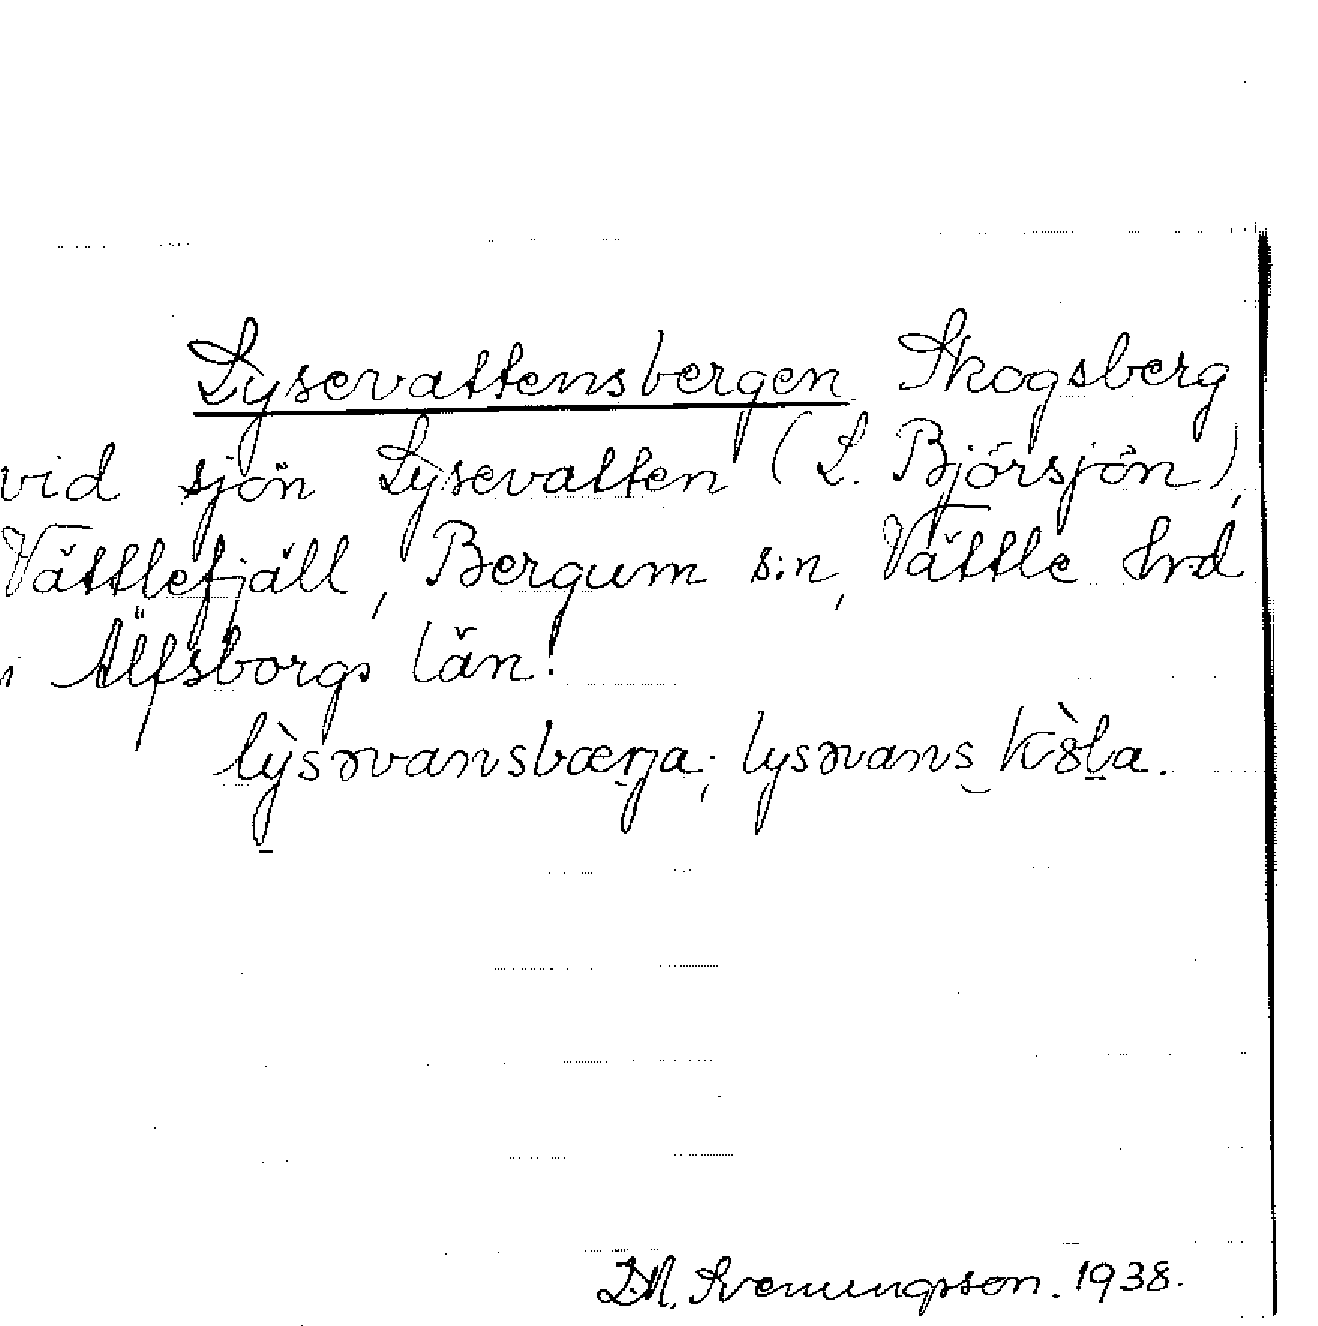 Lysevattensbergen Skogsberg
vid sjön Lysevatten (L. Björsjön),
Vättlefjäll, Bergum s:n, Vättle hrd
i Älfsborgs län.
lỳsəvansbærja; lysəvans
1938.